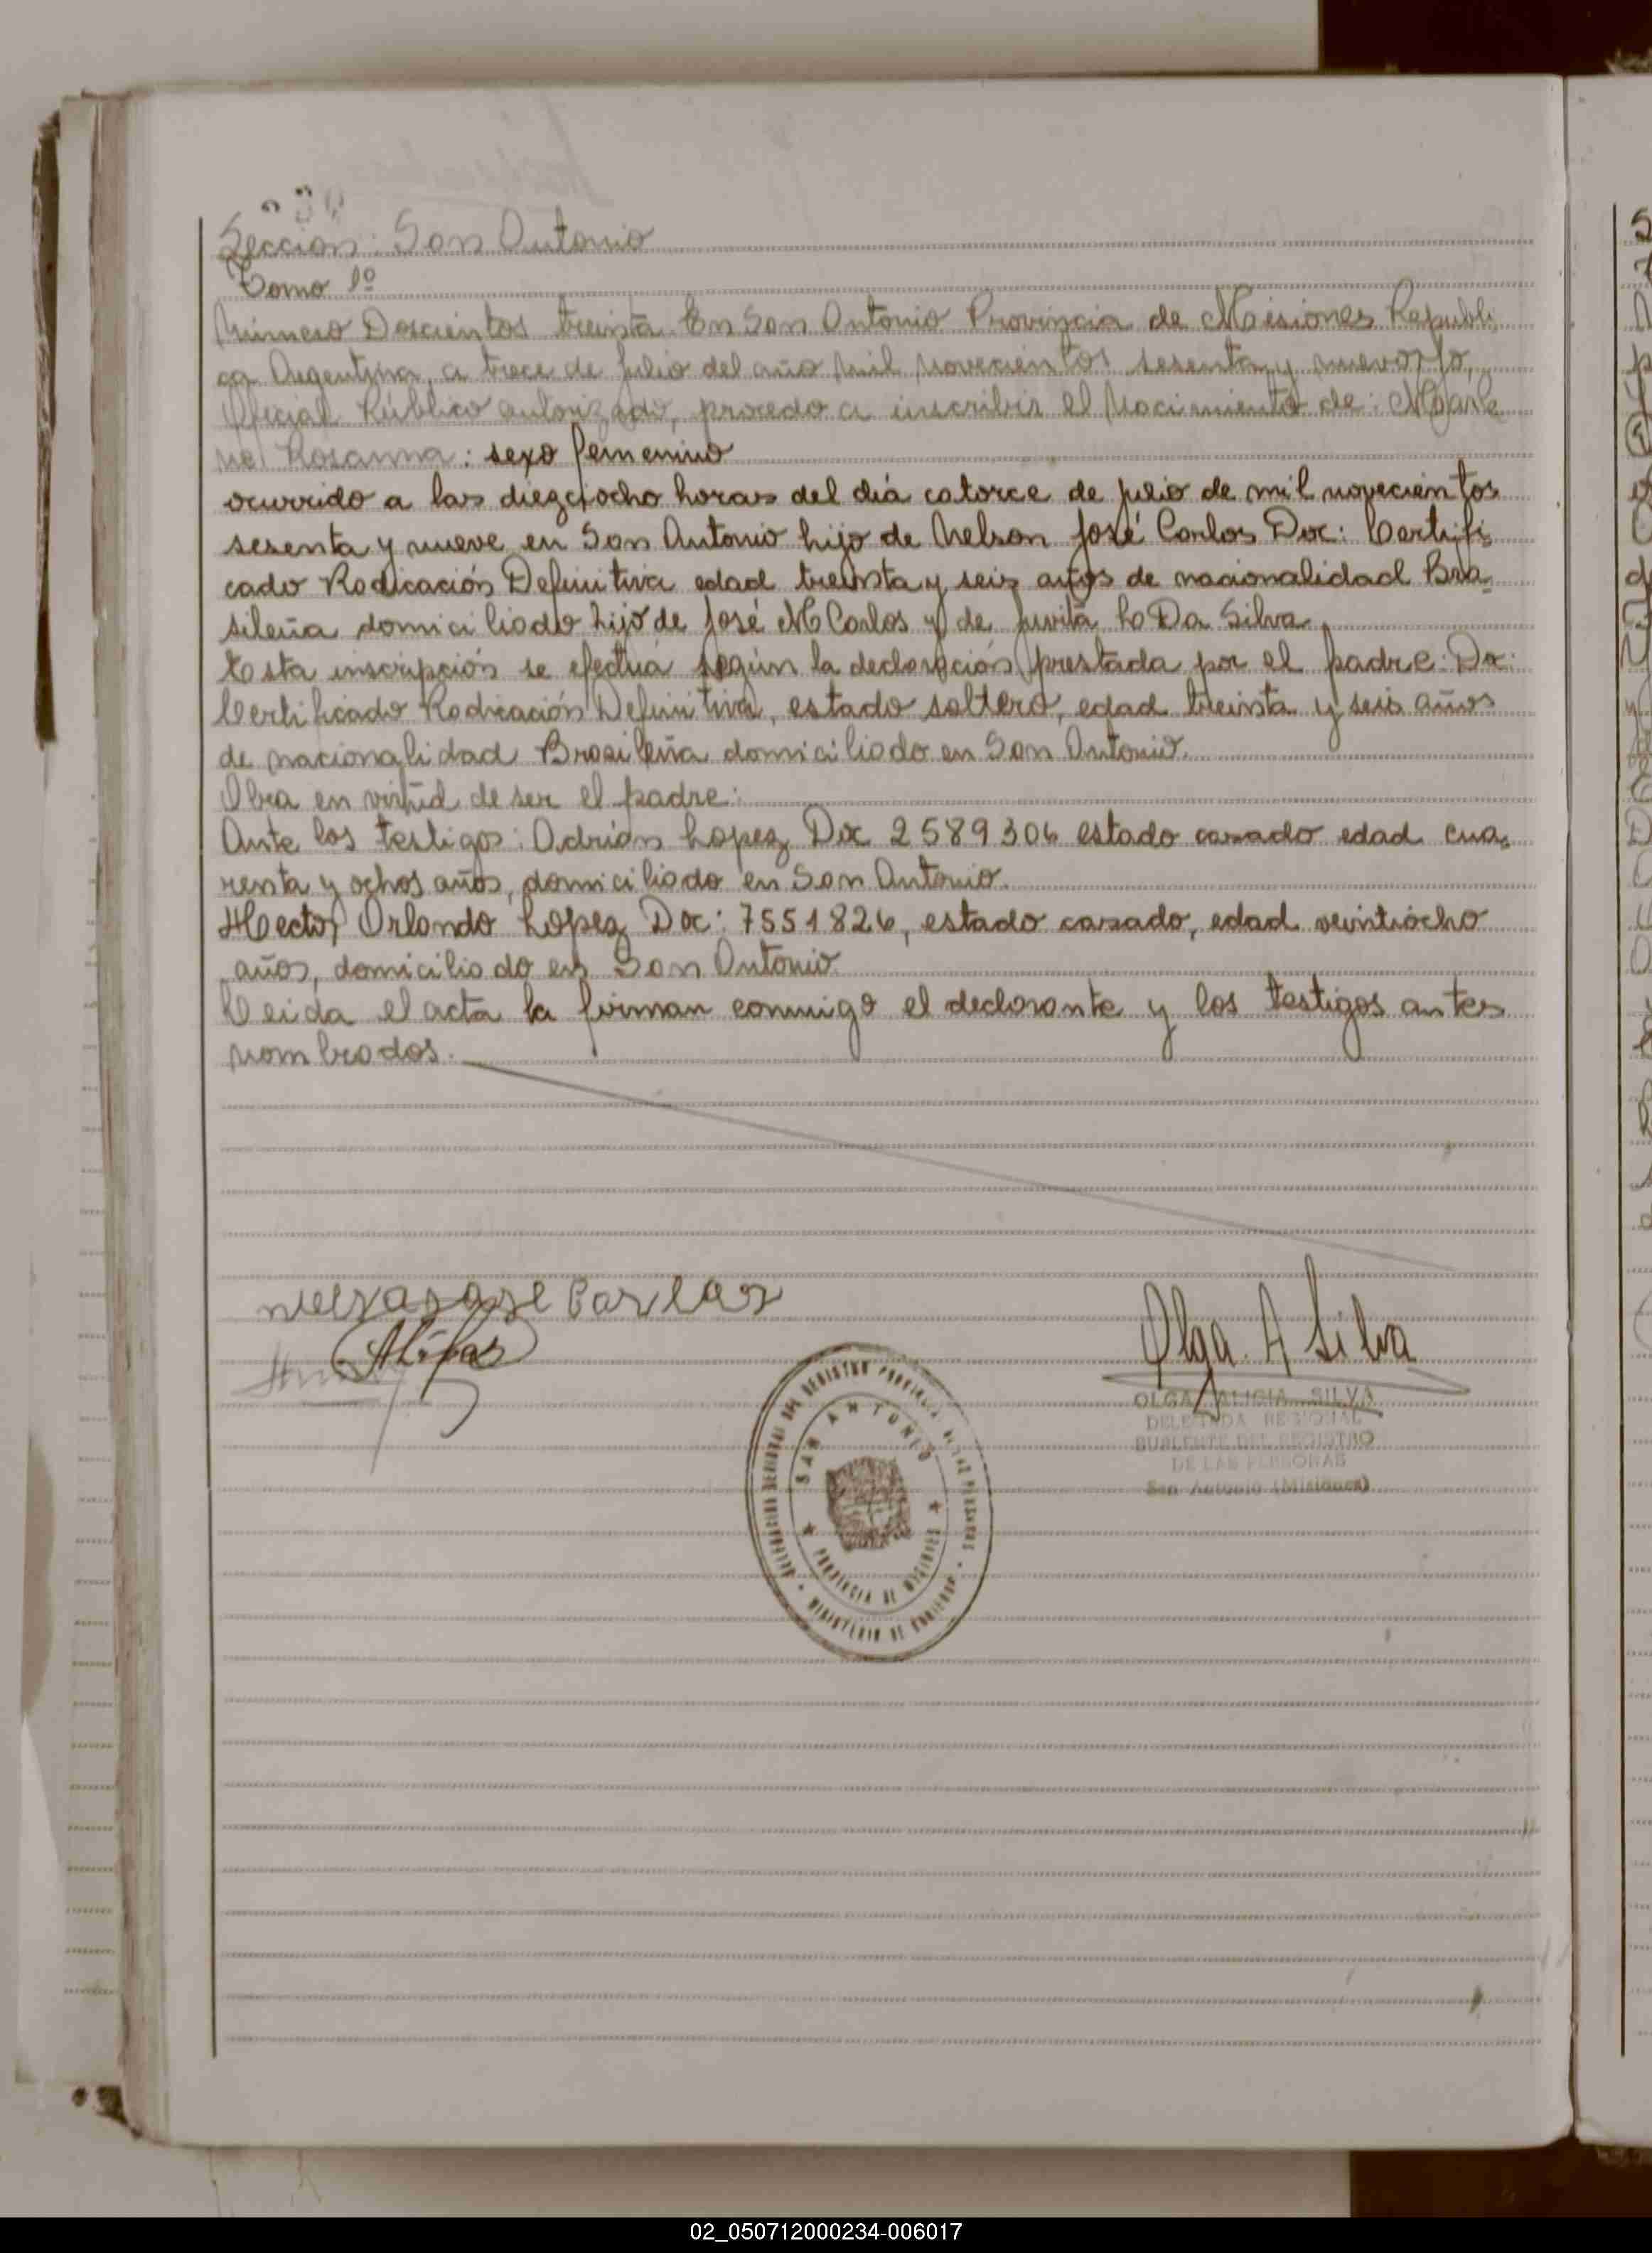 Sección: San Antonio
Tomo 1º
Número Doscientos treinta. En San Antonio Provincia de Misiones Republi,
ca Argentina, a trece de julio del año mil novecientos sesenta y nueve, Yo,
Oficial Público autorizado, procedo a inscribir el Nacimiento de: Marle
ne Rosanna: sexo femenino
ocurrido a las diezciocho horas del día catorce de julio de mil novecientos
sesenta y nueve en San Antonio hijo de Nelson José Carlos Doc: Certifi,
cado Radicación Definitiva edad treinta y seis años de nacionalidad Bra,
sileña domiciliado hijo de José M Carlos y de Juvita L Da Silva.
Esta inscripción se efectuá según la declaración prestada por el padre. Doc:
Certificado Radicación Definitiva, estado soltero, edad treinta y seis años
de nacionalidad Brasileña domiciliado en San Antonio.
Obra en virtúd de ser el padre:
Ante los testigos: Adrián Lopez Doc 2589306 estado casado edad cua,
renta y ochos años, domiciliado en San Antonio.
Hector Orlando Lopez Doc: 7551826, estado casado, edad veintiocho
años, domiciliado en San Antonio
Leida el acta la firman conmigo el declarante y los testigos antes
nombrados.
Carlos
Olga A Silva
OLGA ALICIA SILVA
DELEGADA REGIONAL
SUPLENTE DEL REGISTRO
DE LAS PERSONAS
San Antonio (Misiones)
REGISTRO PROVINCIAL DE LAS PERSONAS
SAN ANTONIO
PROVINCIA DE MISIONES
MINISTERIO DE GOBIERNO
02_050712000234-006017